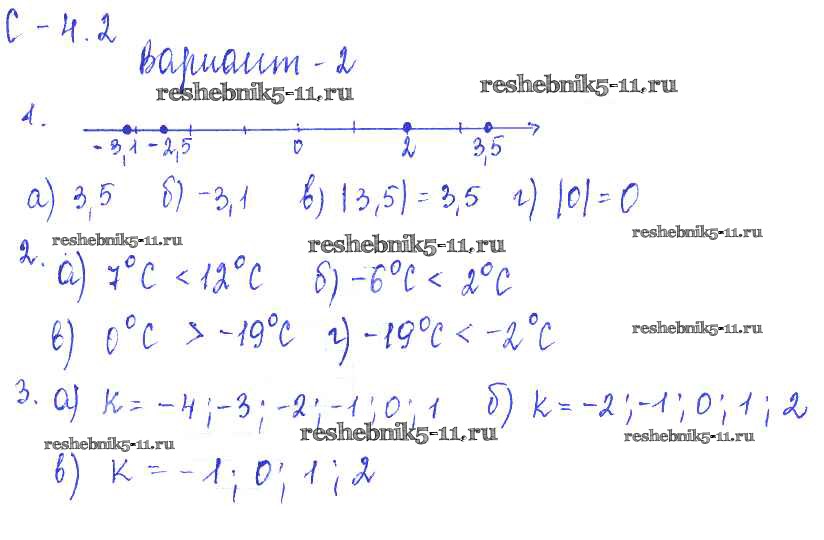 С - 4.2
Вариант - 2
reshebnik5-11.ru reshebnik5-11.ru
1.
-3,1 -2,5 0 2 3,5
а) 3,5 б) -3,1 в) |3,5| = 3,5 г) |0| = 0
reshebnik5-11.ru reshebnik5-11.ru reshebnik5-11.ru
2. а) 7°C < 12°C б) -6°C < 2°C
в) 0°C > -19°C г) -19°C < -2°C
reshebnik5-11.ru
3. а) K = -4; -3; -2; -1; 0; 1 б) K = -2; -1; 0; 1; 2
reshebnik5-11.ru reshebnik5-11.ru reshebnik5-11.ru
в) K = -1; 0; 1; 2